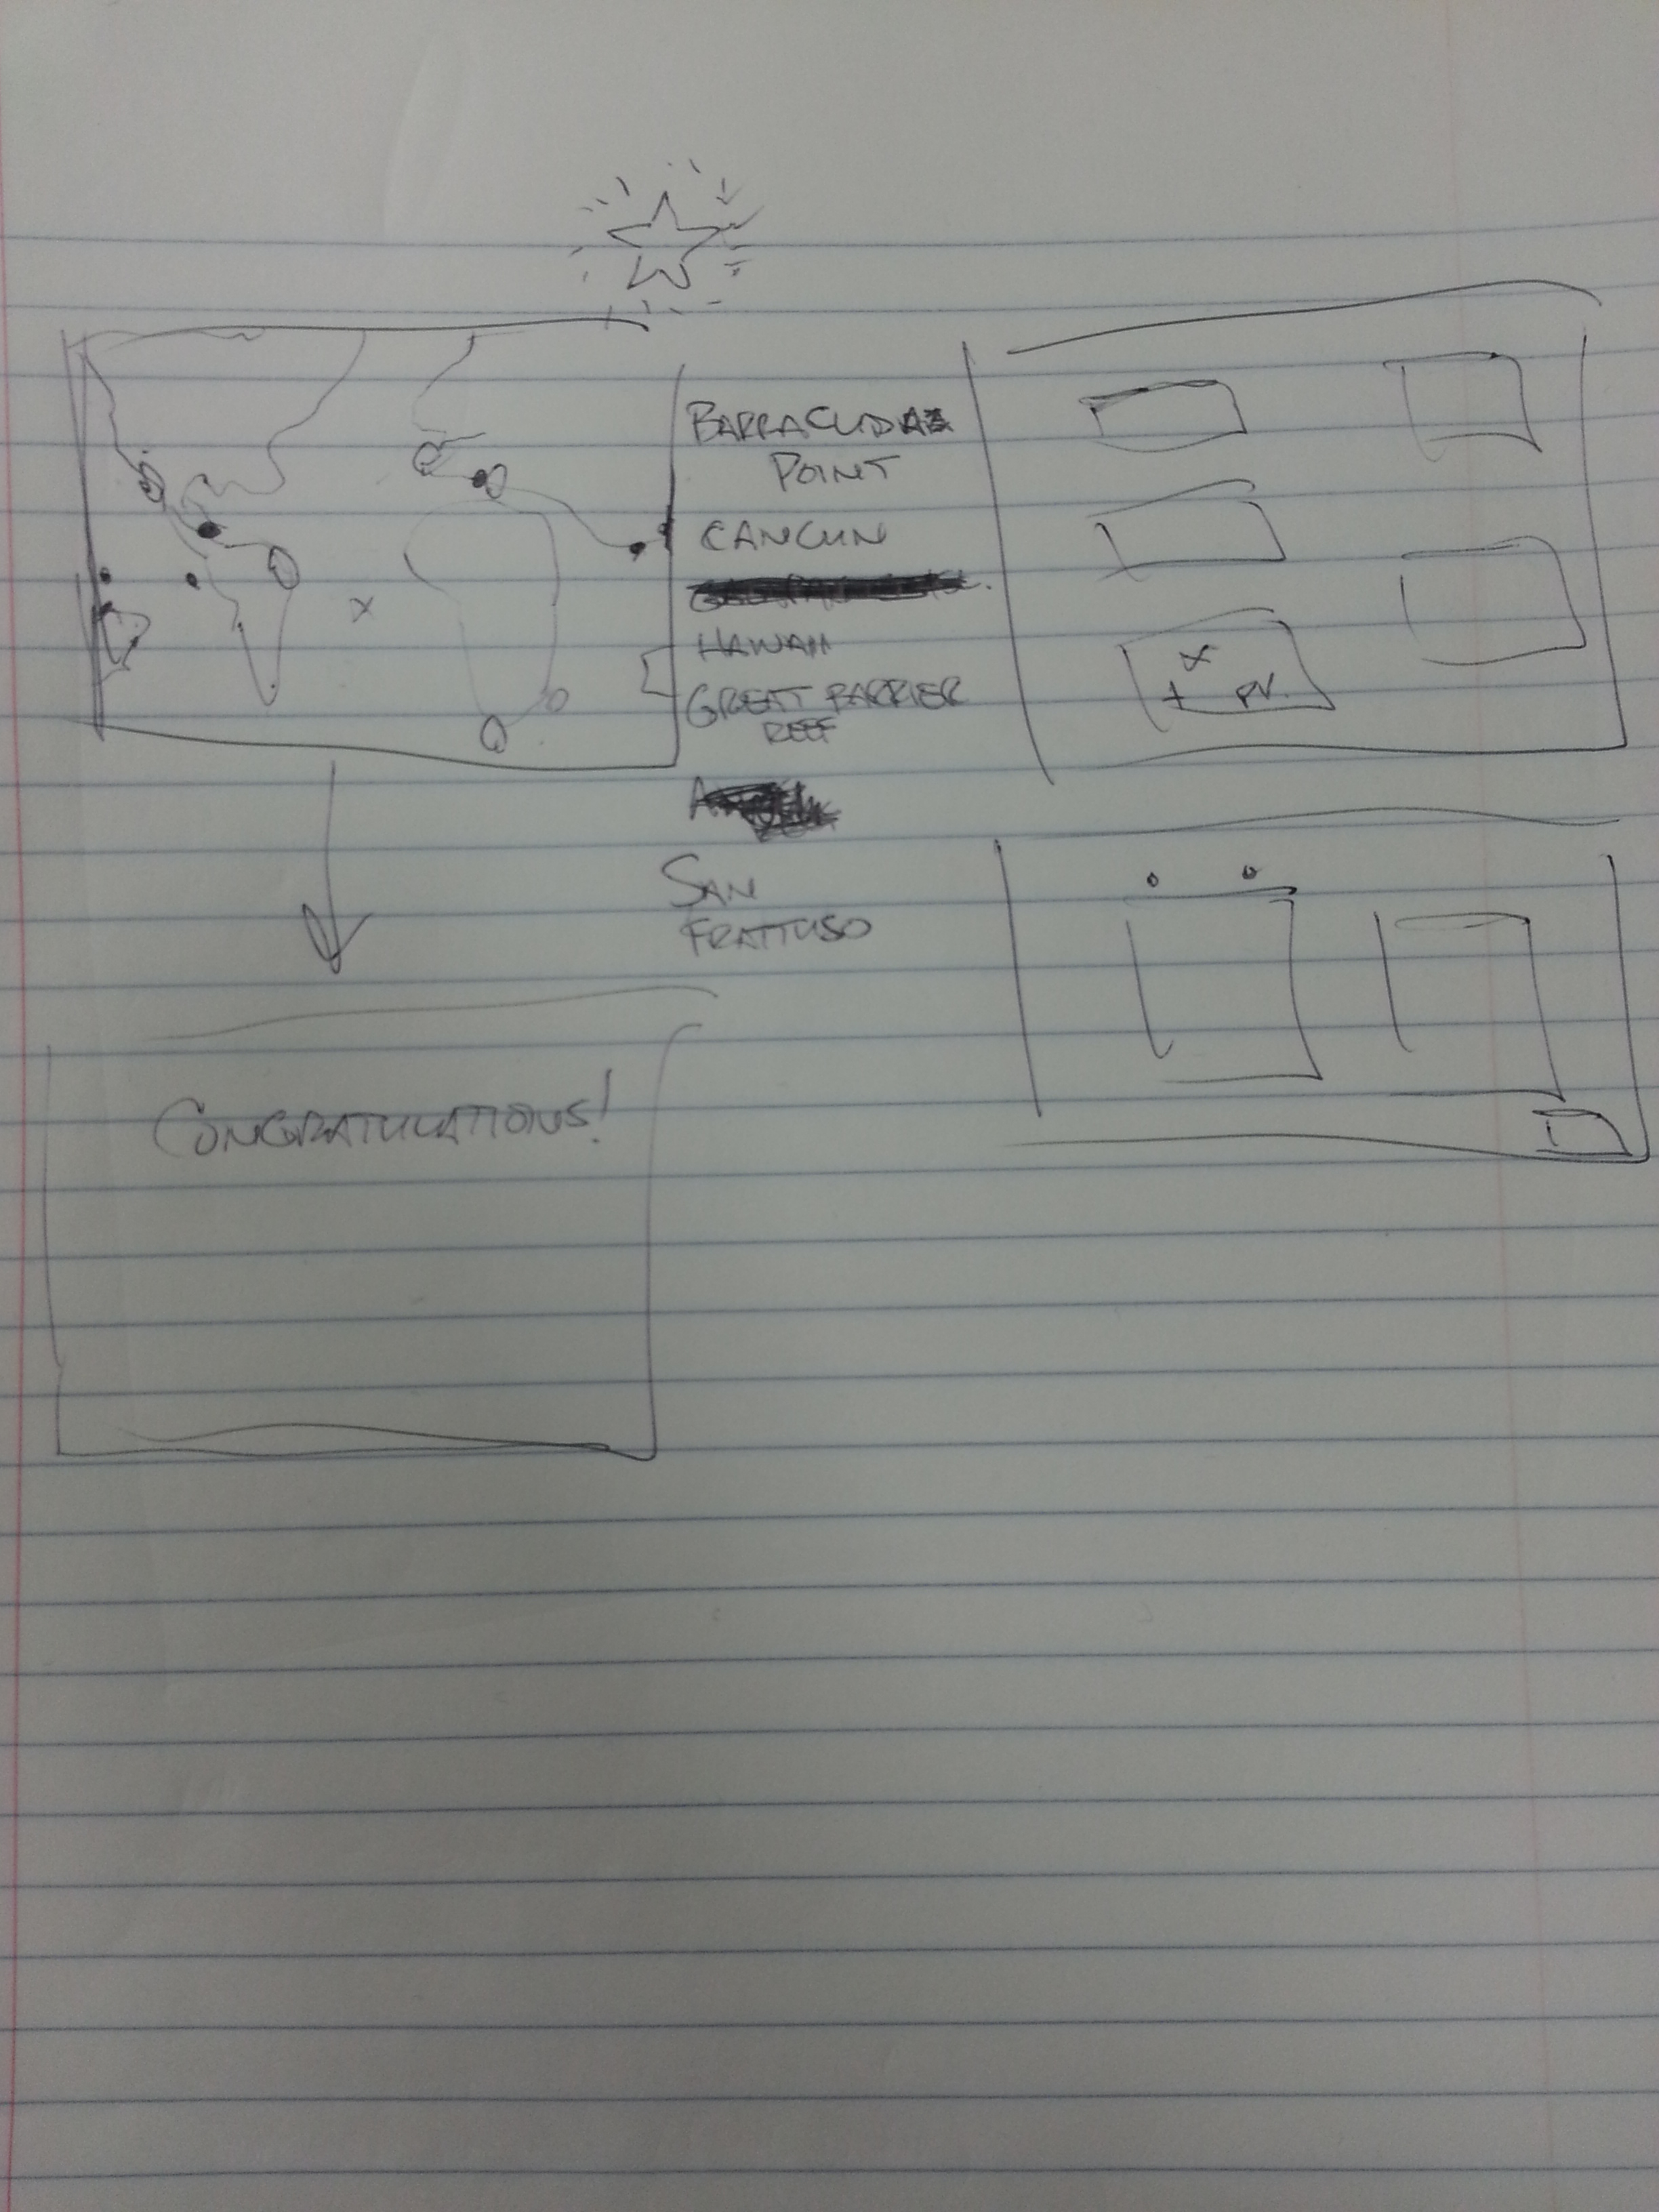 BARRACUDA
POINT
CANCUN
HAWAII
GREAT BARRIER
REEF
SAN
FRATTUSO
X
+ PV.
X
CONGRATULATIONS!